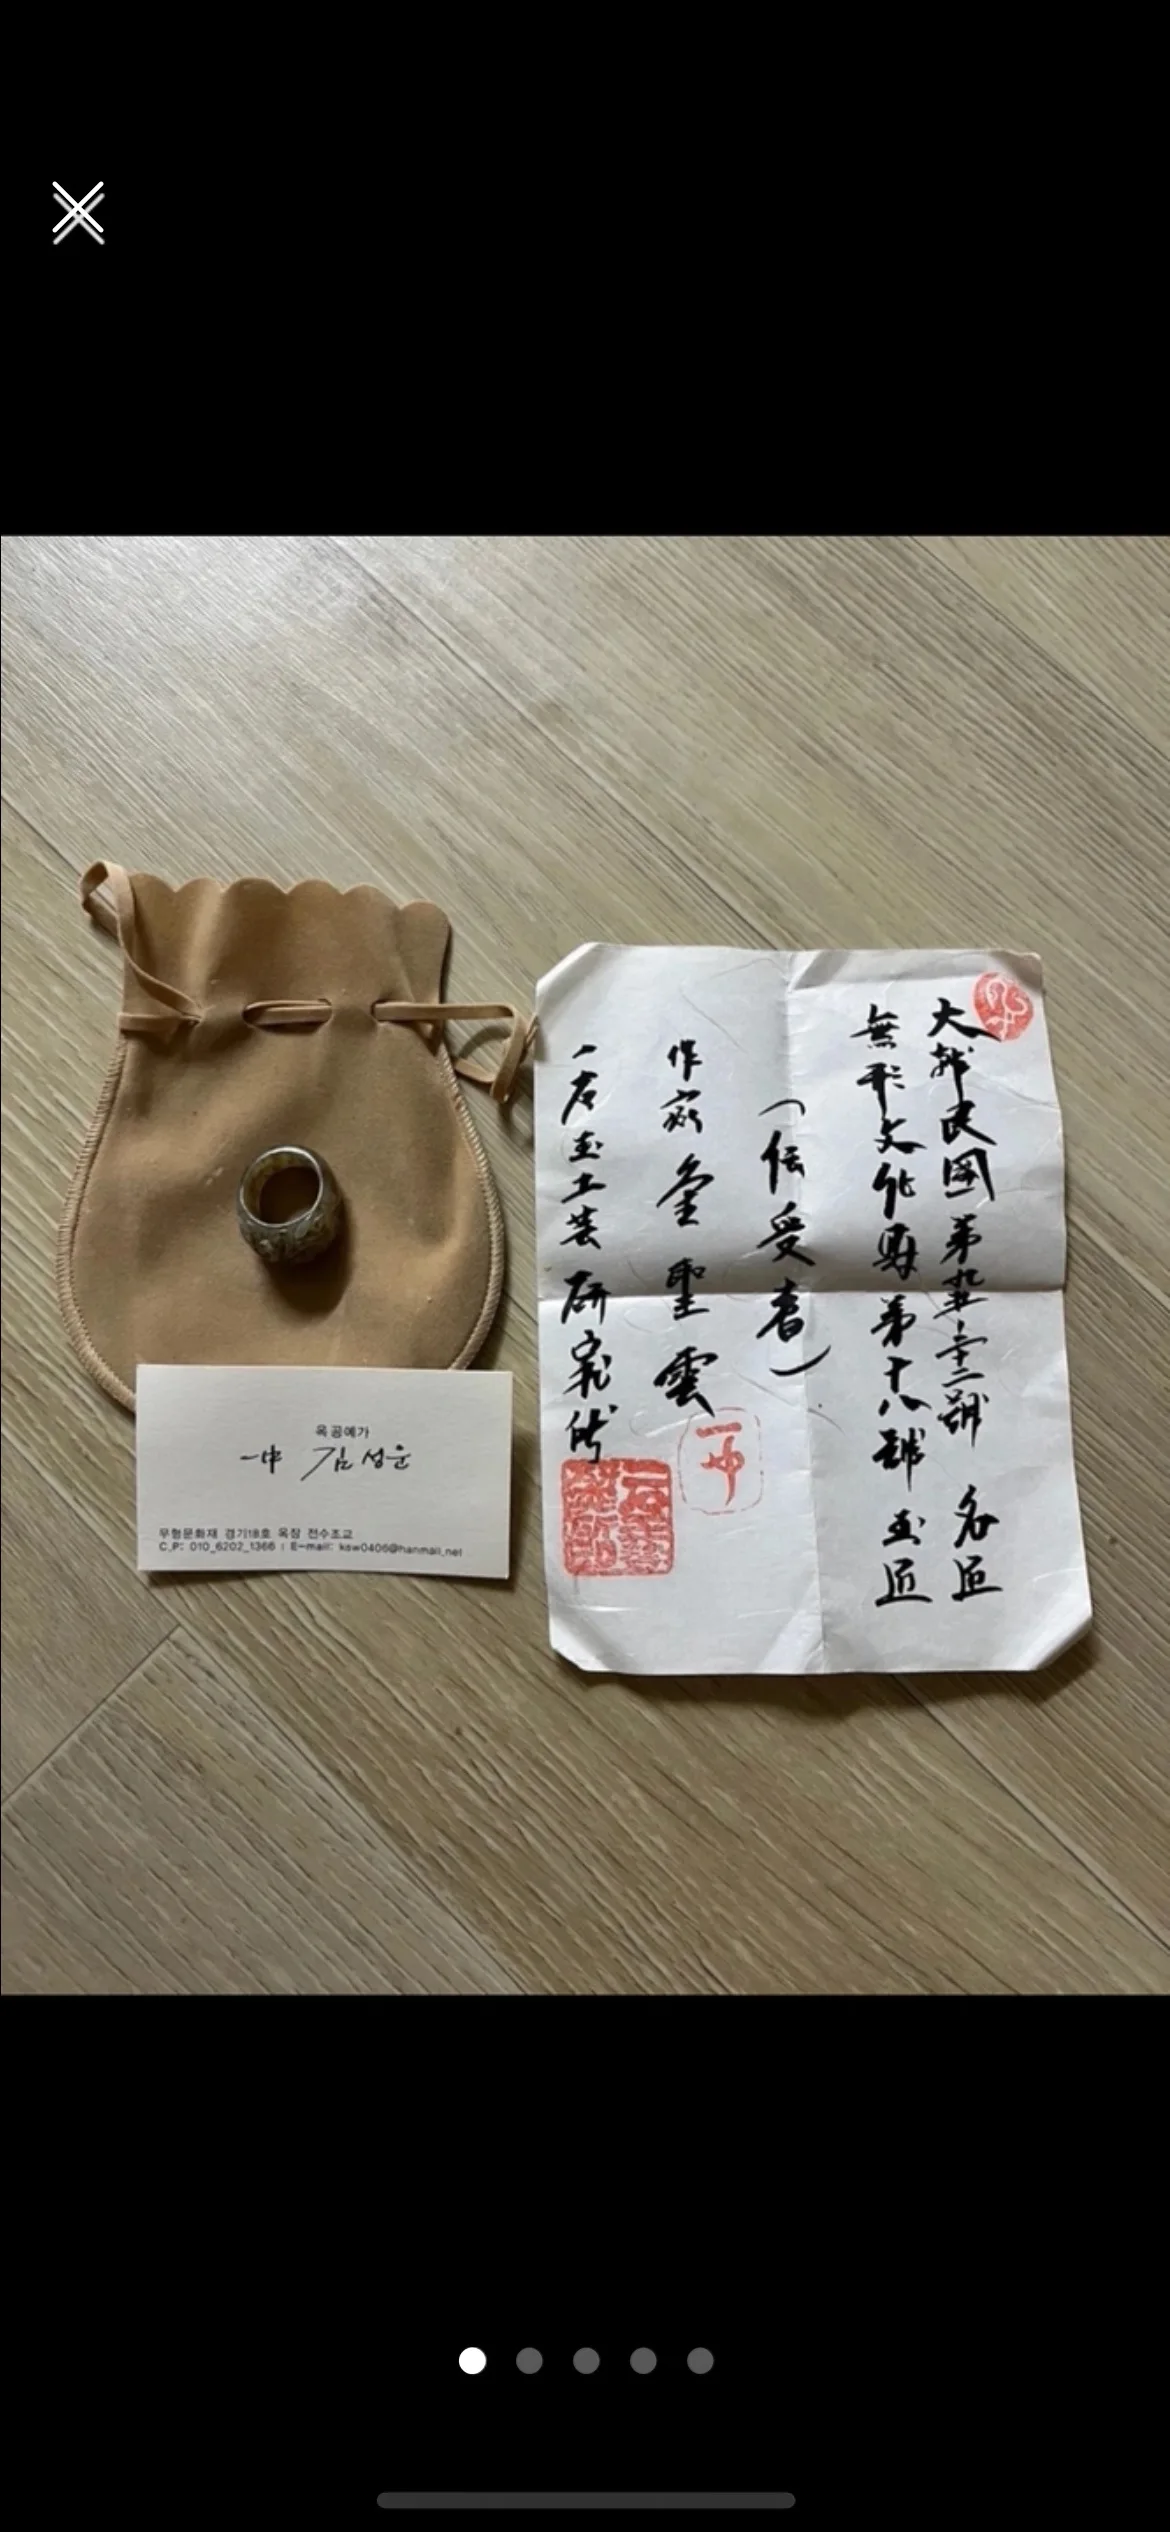 大韓民國 第 號 名匠
無形文化財 第十八號 玉匠
(伝受者)
作家 金聖雲
一石玉工芸研究所
一中
옥공예가
一中 김성운
무형문화재 경기18호 옥장 전수조교
C.P: 010_6202_1366 | E-mail: ksw0406@hanmail.net